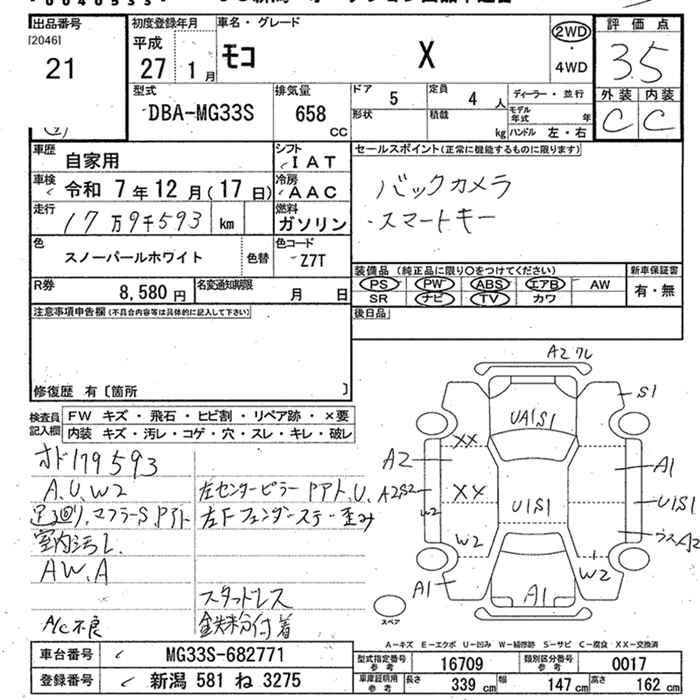 出品番号
[2046]
21
初度登録年月
平成
27 1月
車名・グレード
モコ X
2WD
・
4WD
評価点
3.5
外装 内装
C C
型式
DBA-MG33S
排気量
658
CC
ドア
5
定員
4 人
形状
積載
kg
ディーラー・並行
モデル年式 年
ハンドル 左・右
車歴
自家用
シフト
IAT
車検
令和 7年12月(17日)
冷房
AAC
走行
17万9千593 km
燃料
ガソリン
色
スノーパールホワイト
色替
色コード
Z7T
R券
8,580円
名変通知期限
月 日
セールスポイント(正常に機能するものに限ります)
バックカメラ
・スマートキー
装備品(純正品に限り○をつけてください)
PS PW ABS エアB AW
SR ナビ TV カワ
新車保証書
有・無
後日品
注意事項申告欄(不具合内容等は具体的に記入して下さい)
修復歴 有〔箇所 〕
検査員記入欄
FW キズ・飛石・ヒビ割・リペア跡・×要
内装 キズ・汚レ・コゲ・穴・スレ・キレ・破レ
オド179593
A.U.W2
左センターピラーPアト.U.
マフラーS.Pアト
左Fフェンダーステー歪み
室内汚レ
AW.A
スタットレス
A/C不良
鉄粉付着
A2ワレ
S1
UA1S1
XX
A2
A1
A2S2
XX
U1S1
U1S1
W2
W2
W2
A2
A1
A1
スペア
A-キズ E-エクボ U-凹み W-補修跡 S-サビ C-腐食 XX-交換済
車台番号
MG33S-682771
登録番号
新潟 581 ね 3275
型式指定番号
参考
16709
類別区分番号
参考
0017
車庫証明用
参考
長さ 339 cm
幅 147 cm
高さ 162 cm